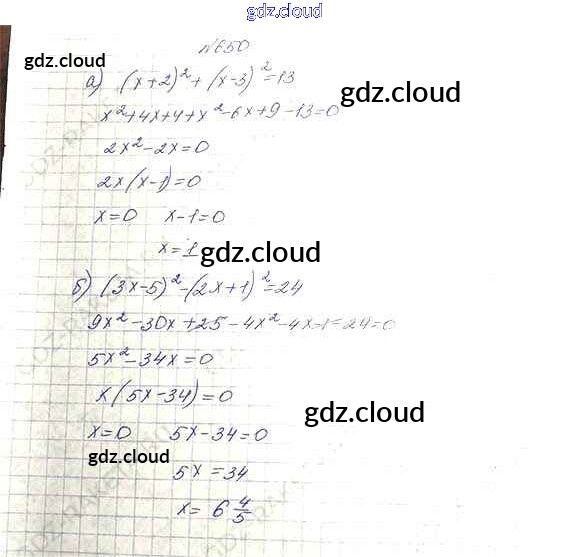 gdz.cloud
№650
gdz.cloud
а) (x+2)²+(x-3)²=13
gdz.cloud
x²+4x+4+x²-6x+9-13=0
2x²-2x=0
2x(x-1)=0
x=0 x-1=0
x=1
gdz.cloud
б) (3x-5)²-(2x+1)²=24
9x²-30x+25-4x²-4x-1-24=0
5x²-34x=0
x(5x-34)=0
gdz.cloud
x=0 5x-34=0
gdz.cloud
5x=34
x=6 4/5